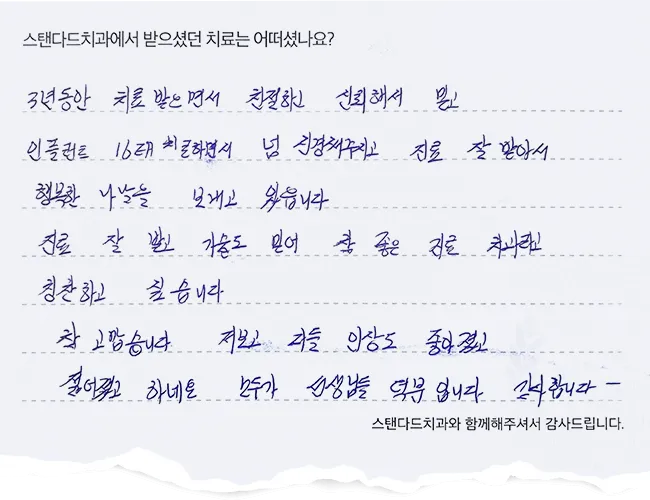 스탠다드치과에서 받으셨던 치료는 어떠셨나요?
3년동안 치료 받으면서 친절하고 신뢰해서 믿고
인플런트 16대 치료하면서 넘 신경써주시고 진료 잘 받아서
행복한 나날을 보내고 있읍니다
진료 잘 받고 기술도 믿어 참 좋은 치료 치과라고
칭찬하고 싶습니다
참 고맙습니다 저보고 다들 인상도 좋아졌고
젊어졌고 하네요 모두가 선생님들 덕분입니다 감사합니다
스탠다드치과와 함께해주셔서 감사드립니다.